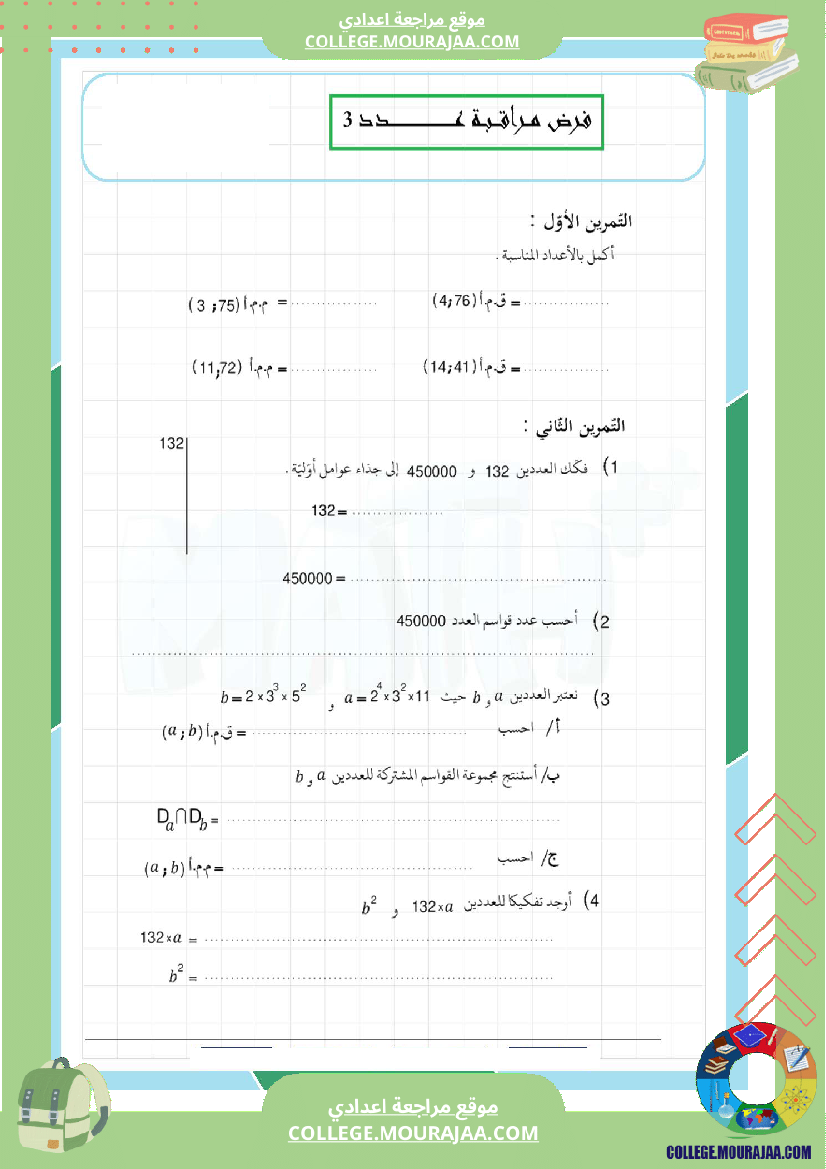 موقع مراجعة اعدادي
COLLEGE.MOURAJAA.COM
فرض مراقبة عـــــدد 3
التّمرين الأوّل :
أكمل بالأعداد المناسبة .
ق.م.أ (4;76) = ................
م.م.أ (3 ;75) = ................
ق.م.أ (14;41) = ................
م.م.أ (11,72) = ................
التّمرين الثّاني :
132
1) فكّك العددين 132 و 450000 إلى جذاء عوامل أوّليّة .
132 = ..................
450000 = ................................................
2) أحسب عدد قواسم العدد 450000
................................................................................
3) نعتبر العددين a و b حيث a = 2⁴ × 3² × 11 و b = 2 × 3³ × 5²
أ/ احسب ق.م.أ (a ; b) = ........................................
ب/ أستنتج مجموعة القواسم المشتركة للعددين a و b
Dₐ∩D_b = ................................................
ج/ احسب م.م.أ (a ; b) = ........................................
4) أوجد تفكيكا للعددين 132×a و b²
132×a = ................................................
b² = ................................................
موقع مراجعة اعدادي
COLLEGE.MOURAJAA.COM
COLLEGE.MOURAJAA.COM